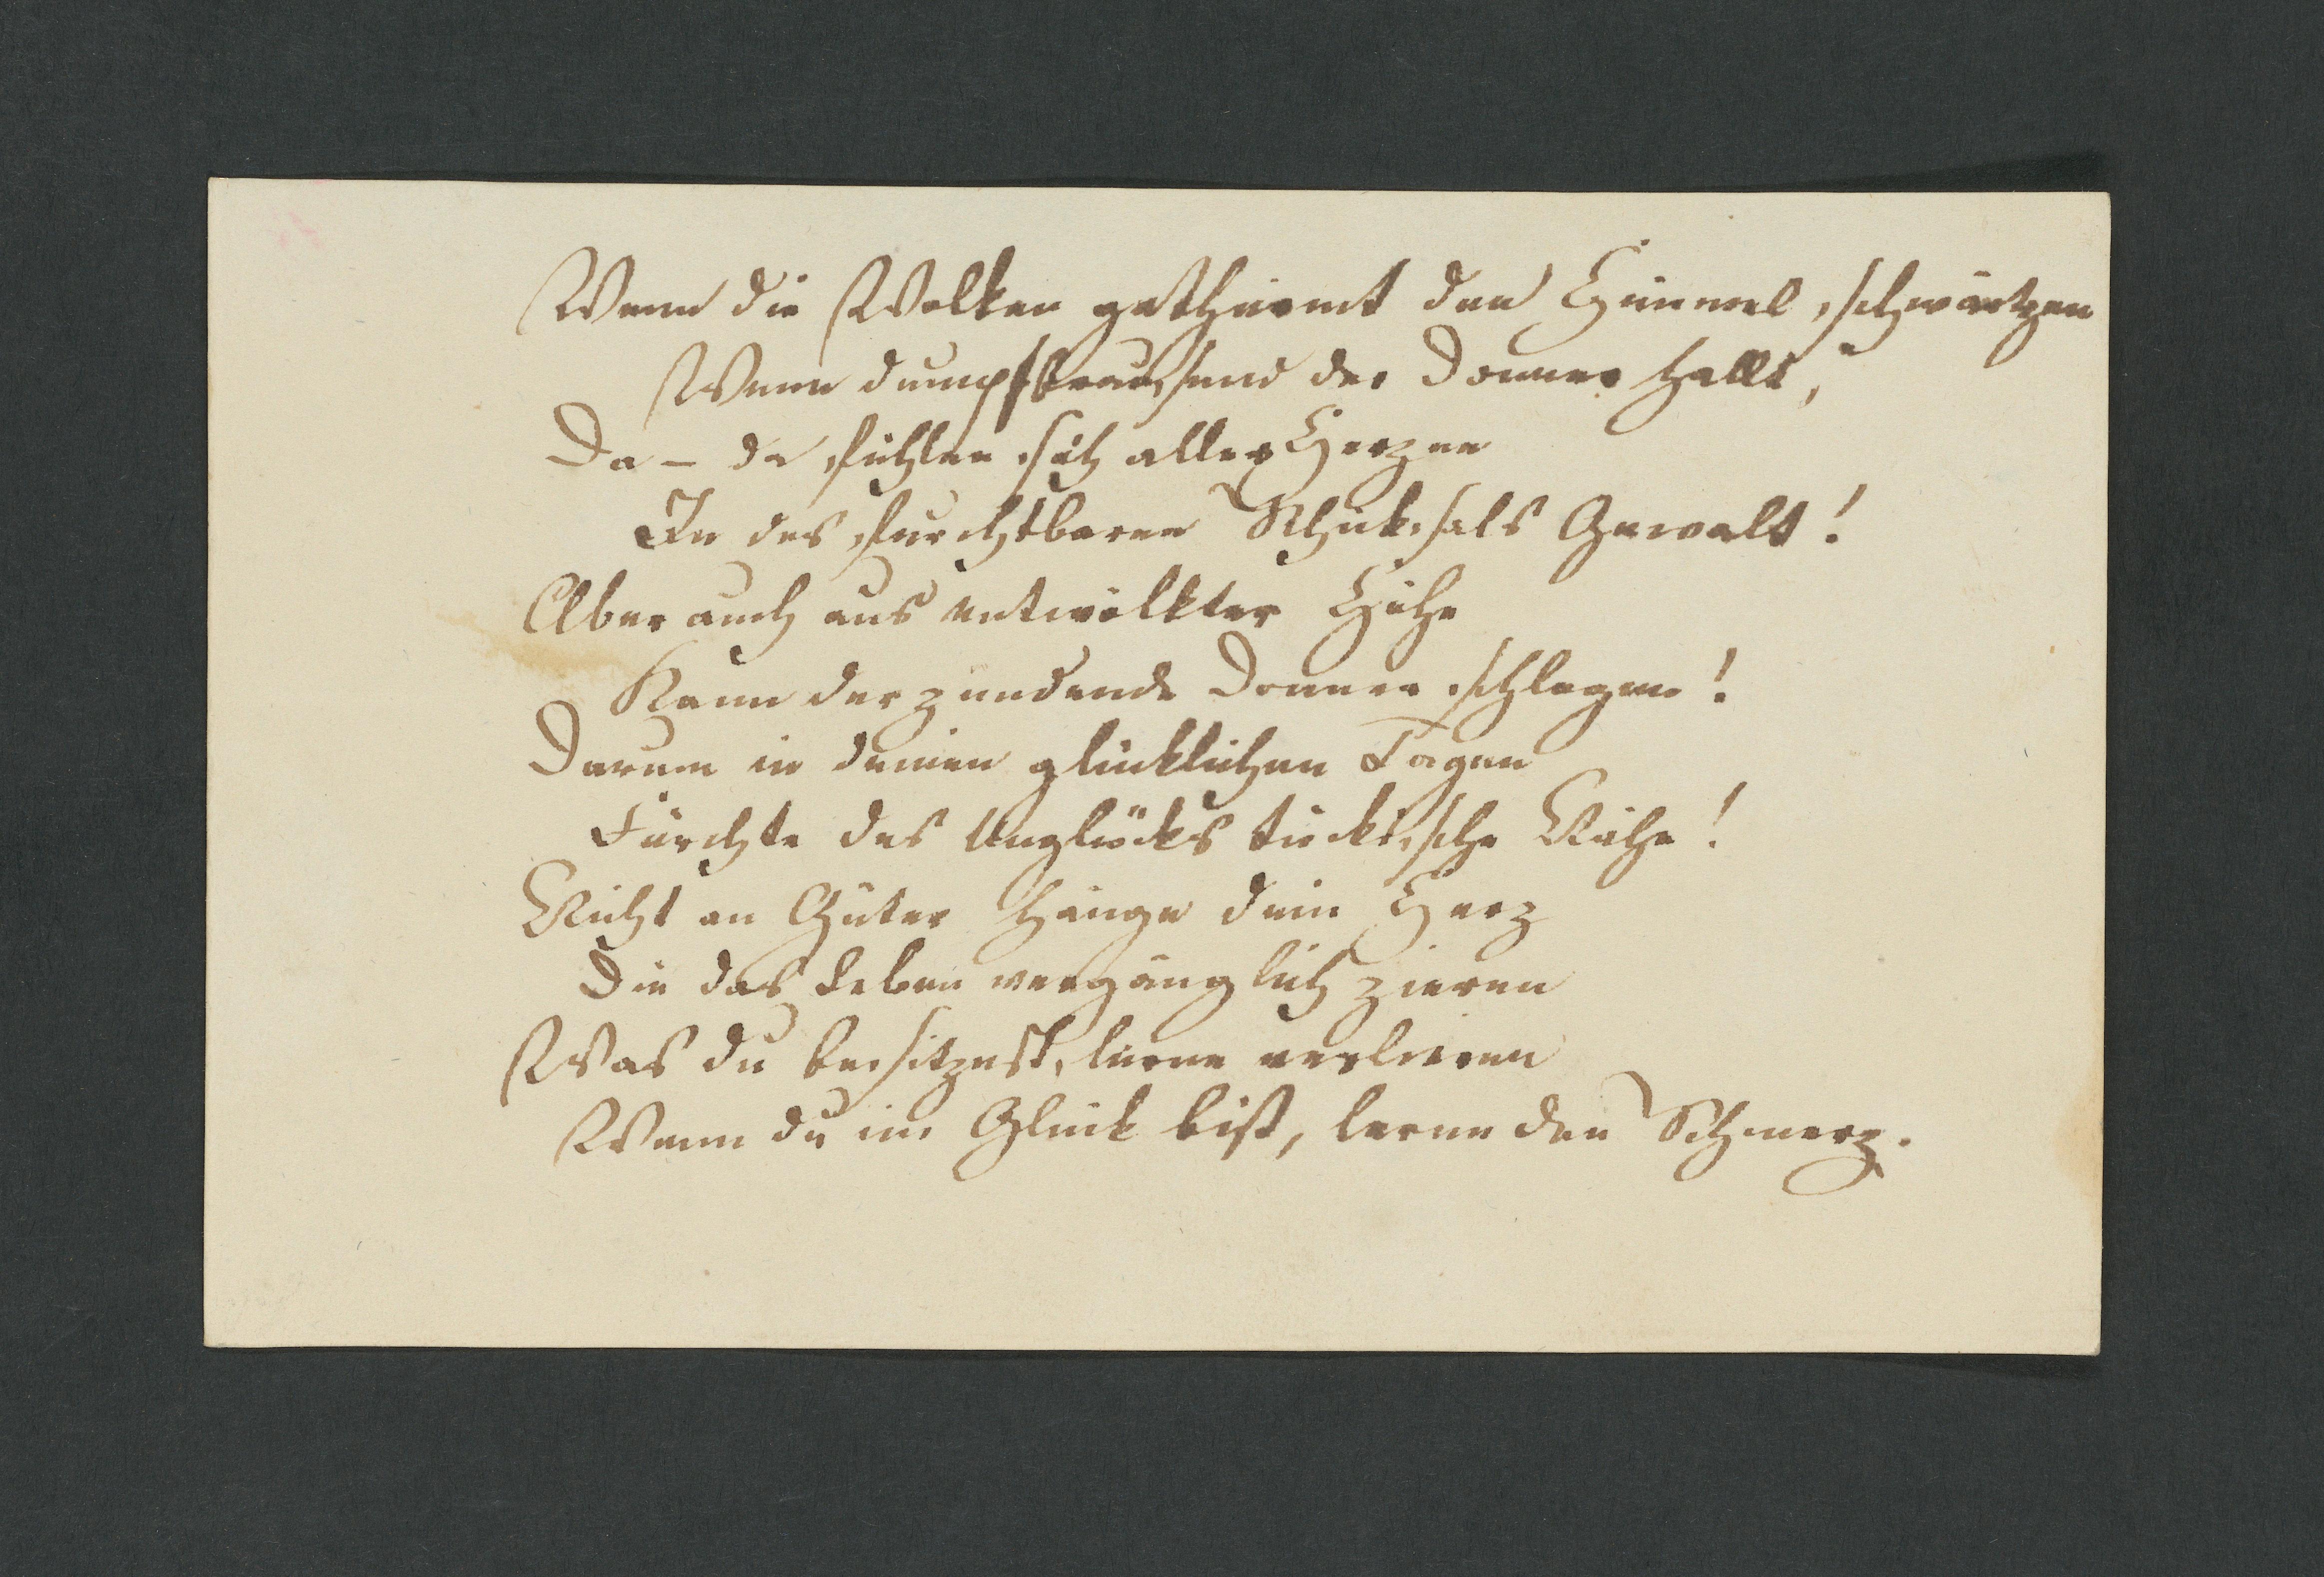 Wenn die Wolken gethürmt den Himmel schwärtzen
Wenn dumpfbrausend der Donner hallt,
Da – da fühlen sich aller Herzen
In des furchtbaren Schiksals Gewalt!
Aber auch aus entwölkter Höhe
Kann der zündende Donner schlagen!
Darum in deinen glücklichen Tagen
Fürchte des Unglücks tückische Nähe!
Nicht an Güter hänge dein Herz
Die das Leben vergänglich zieren
Was du besitzest, lerne verlieren
Wenn du im Glück bist, lerne den Schmerz.